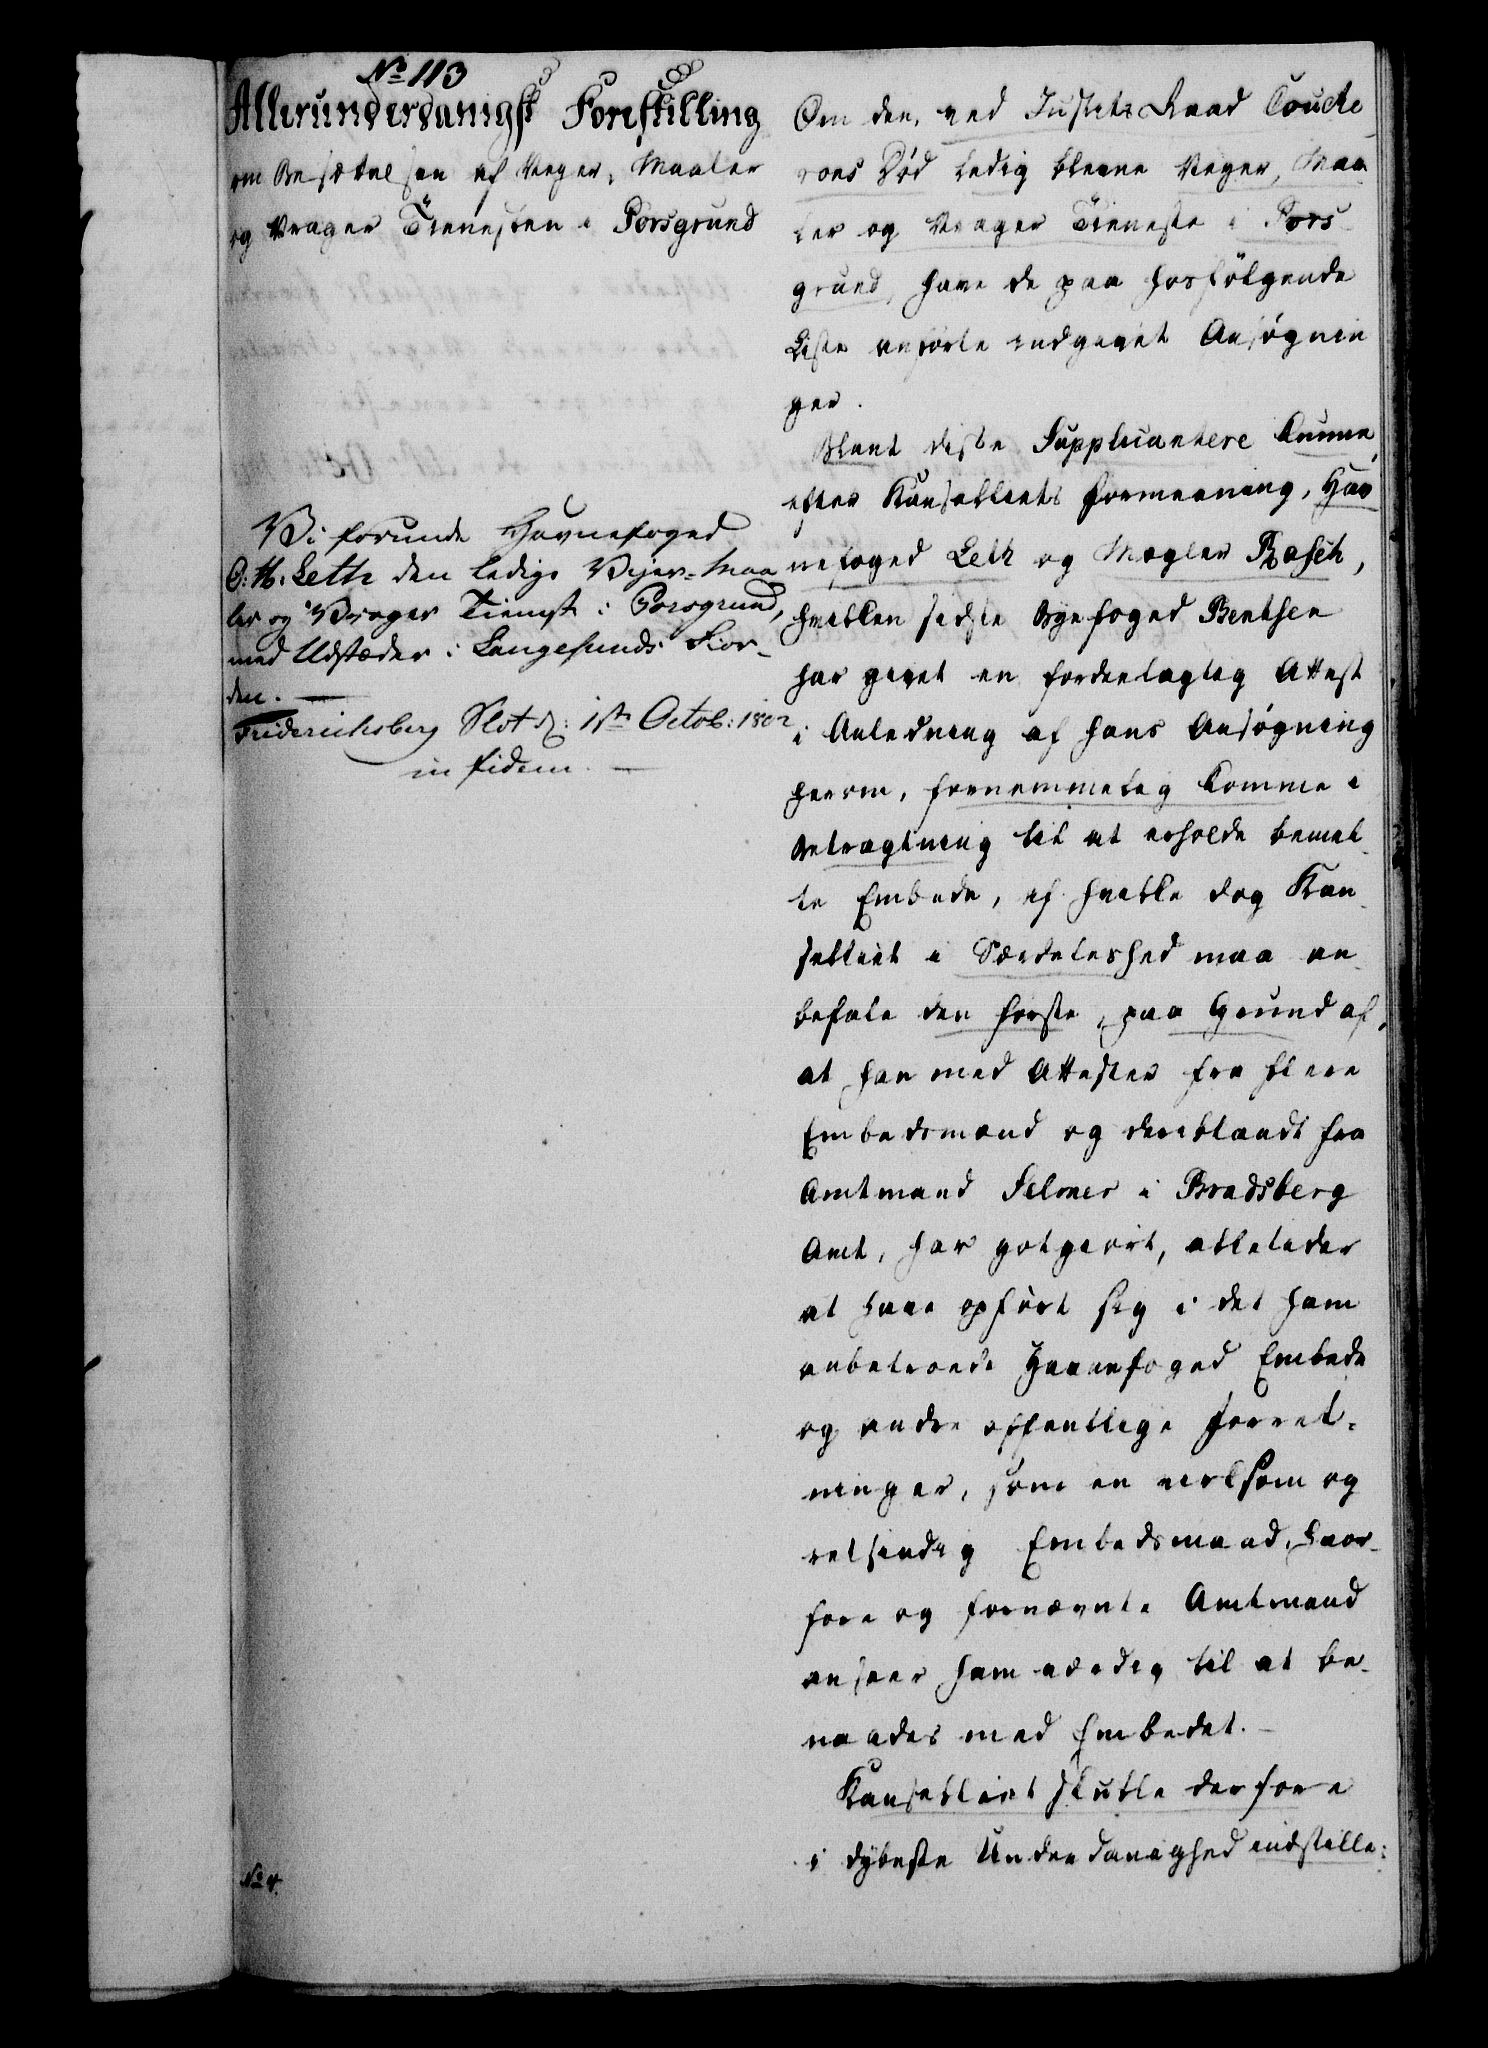 No 113
Allerunderdanigst Forestilling
om Besættelsen af Veyer, Maaler
og Vrager Tienesten i Porsgrund
Vi forunde Havnefoged
O: H: Leth den ledige Vejer- Maa
ler og Vrager Tieneste i Porsgrund,
med Udstæder i Langesunds Fior-
den. —
Friderichsberg Slot d: 1ste Octob: 1802
in fidem. —
No 4.
Om den, ved Justits Raad Couche
rons Død ledig blevne Veyer, Maa
ler og Vrager Tieneste i Pors-
grund, have de paa hosfølgende
Liste anførte indgivet Ansøgnin
ger.
Blant disse Supplicantere kunne,
efter Kanselliets Formeening, Hav
nefoged Leth og Mægler Rasch,
hvilken sidste Byefoged Bentsen
har givet en fordeelagtig Attest
i Anledning af hans Ansøgning
herom, fornemmelig komme i
Betragtning til at erholde bemel-
te Embede, af hvilke dog Kan-
selliet i Særdeleshed maa an-
befale den første, paa Grund af,
at han med Attester fra flere
Embedsmænd og deriblandt fra
Amtmand Selmer i Bradsberg
Amt, har gotgiort, allerede
at have opført sig i det ham
anbetroede Havnefoged Embede
og andre offentlige Forret-
ninger, som en virksom og
retsindig Embedsmand, hvor-
fore og fornævnte Amtmand
anseer ham værdig til at be-
naades med Embedet. —
Kanselliet skulle derfore
i dybeste Underdanighed indstille: